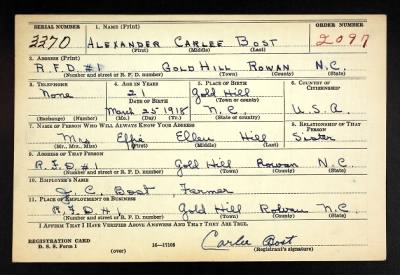 SERIAL NUMBER 1. NAME (Print) ORDER NUMBER
3370 ALEXANDER CARLEE BOST 2097
(First) (Middle) (Last)
2. ADDRESS (Print)
R.F.D #1 GOLD HILL ROWAN N.C.
(Number and street or R. F. D. number) (Town) (County) (State)
3. TELEPHONE 4. AGE IN YEARS 5. PLACE OF BIRTH 6. COUNTRY OF CITIZENSHIP
None 21 Gold Hill
DATE OF BIRTH (Town or county)
March 25 1918 N.C. U.S.A
(Exchange) (Number) (Mo.) (Day) (Yr.) (State or country)
7. NAME OF PERSON WHO WILL ALWAYS KNOW YOUR ADDRESS 8. RELATIONSHIP OF THAT PERSON
Mrs Effie Ellen Hill Sister
(Mr., Mrs., Miss) (First) (Middle) (Last)
9. ADDRESS OF THAT PERSON
R.F.D #1 Gold Hill Rowan N.C.
(Number and street or R. F. D. number) (Town) (County) (State)
10. EMPLOYER'S NAME
J. C. Bost, Farmer
11. PLACE OF EMPLOYMENT OR BUSINESS
R.F.D #1 Gold Hill Rowan N.C.
(Number and street or R. F. D. number) (Town) (County) (State)
I AFFIRM THAT I HAVE VERIFIED ABOVE ANSWERS AND THAT THEY ARE TRUE.
REGISTRATION CARD
D. S. S. Form 1 16—17105 Carlee Bost
(over) (Registrant's signature)